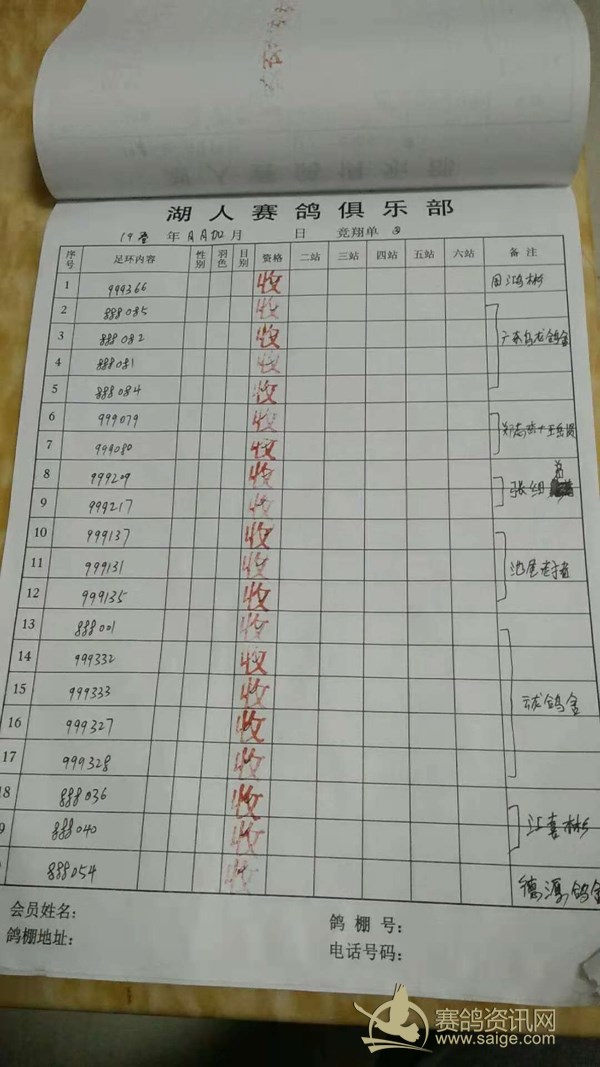 湖人赛鸽俱乐部
19 年 月 月 日 竞翔单
序号 足环内容 性别 羽色 目别 资格 二站 三站 四站 五站 六站 备注
1 999366 收
2 888085 收
3 888082 收 广东 龙鸽舍
4 888081 收
5 888084 收
6 999079 收
7 999080 收
8 999209 收 张
9 999217 收
10 999137 收
11 999131 收 池尾
12 999135 收
13 888001 收
14 999332 收
15 999333 收 云龙鸽舍
16 999327 收
17 999328 收
18 888036 收
9 888040 收 江喜彬
888054 收 德源鸽舍
会员姓名： 鸽棚号：
鸽棚地址： 电话号码：
赛鸽资讯网
www.saige.com